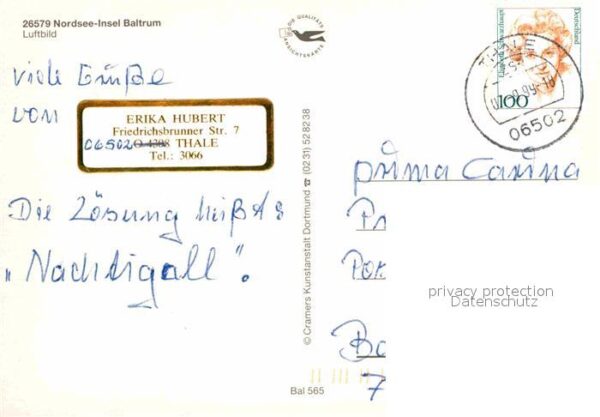 26579 Nordsee-Insel Baltrum
Luftbild
DIE QUALITÄTS
ANSICHTSKARTE
Viele Grüße
von
ERIKA HUBERT
Friedrichsbrunner Str. 7
06502 O-4308 THALE
Tel.: 3066
Die Lösung heißt
"Nachtigall".
© Cramers Kunstanstalt Dortmund ☎ (0231) 528238
Bal 565
Deutschland
100
THALE
06502
prima Carina
Po
privacy protection
Datenschutz
7